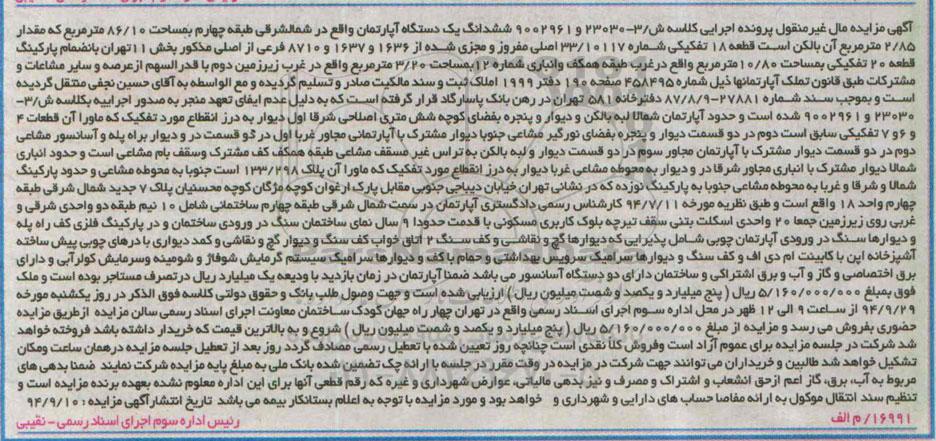 آگهی مزایده مال غیرمنقول پرونده اجرایی کلاسه ش/۳-۲۳۰۳۰ و ۹۰۰۲۹۶۱ ششدانگ یک دستگاه آپارتمان واقع در شمالشرقی طبقه چهارم بمساحت ۸۶/۱۰ مترمربع که مقدار
۲/۸۵ مترمربع آن بالکن است قطعه ۱۸ تفکیکی شماره ۳۳/۱۰۱۱۷ اصلی مفروز و مجزی شده از ۱۶۳۶ و ۱۶۳۷ و ۸۷۱۰ فرعی از اصلی مذکور بخش ۱۱ تهران بانضمام پارکینگ
قطعه ۲۰ تفکیکی بمساحت ۱۰/۸۰ مترمربع واقع درغرب طبقه همکف وانباری شماره ۱۲ بمساحت ۳/۲۰ مترمربع واقع در غرب زیرزمین دوم با قدر السهم ازعرصه و سایر مشاعات و
مشترکات طبق قانون تملک آپارتمانها ذیل شماره ۴۰۸۴۹۵ صفحه ۱۹۰ دفتر ۱۹۹۹ املاک ثبت و سند مالکیت صادر و تسلیم گردیده و مع الواسطه به آقای حسین نجفی منتقل گردیده
است و بموجب سند شماره ۲۷۸۸۱-۸۷/۸/۹ دفترخانه ۵۸۱ تهران در رهن بانک پاسارگاد قرار گرفته است که به دلیل عدم ایفای تعهد منجر به صدور اجراییه بکلاسه ش/۳-
۲۳۰۳۰ و ۹۰۰۲۹۶۱ شده است و حدود آپارتمان شمالا لبه بالکن و دیوار و پنجره بفضای کوچه شش متری اصلاحی شرقا اول دیوار به درز انقطاع مورد تفکیک که ماورا آن قطعات ۴
و ۶و ۷ تفکیکی سابق است دوم در دو قسمت دیوار و پنجره بفضای نورگیر مشاعی جنوبا دیوار مشترک با آپارتمانی مجاور غربا اول در دو قسمت در و دیوار براه پله و آسانسور مشاعی
دوم در دو قسمت دیوار مشترک با آپارتمان مجاور سوم در دو قسمت دیوار و لبه بالکن به تراس غیر مسقف مشاعی طبقه همکف کف مشترک وسقف بام مشاعی است و حدود انباری
شمالا دیوار مشترک با انباری مجاور شرقا در و دیوار به محوطه مشاعی غربا دیوار به درز انقطاع مورد تفکیک که ماورا آن پلاک ۱۳۳/۲۹۸ است جنوبا به محوطه مشاعی و حدود پارکینگ
شمالا و شرقا و غربا به محوطه مشاعی جنوبا به پارکینگ نوزده که در نشانی تهران خیابان دیباجی جنوبی مقابل پارک ارغوان کوچه مژگان کوچه محسنیان پلاک ۷ جدید شمال شرقی طبقه
چهارم واحد ۱۸ واقع است و طبق نظریه مورخه ۹۴/۷/۱۱ کارشناس رسمی دادگستری آپارتمان در سمت شمال شرقی طبقه چهارم ساختمانی شامل ۱۰ نیم طبقه دو واحدی شرقی و
غربی روی زیرزمین جمعا ۲۰ واحدی اسکلت بتنی سقف تیرچه بلوک کاربری مسکونی با قدمت حدودا ۹ سال نمای ساختمان سنگ در ورودی ساختمان و در پارکینگ فلزی کف راه پله
و دیوارها سنگ در ورودی آپارتمان چوبی شامل پذیرایی که دیوارها گچ و نقاشی و کف سنگ ۲ اتاق خواب کف سنگ و دیوار گچ و نقاشی و کمد دیواری با درهای چوبی پیش ساخته
آشپزخانه اپن با کابینت ام دی اف و کف سنگ و دیوارها سرامیک سرویس بهداشتی و حمام با کف و دیوارها سرامیک سیستم گرمایش شوفاژ و شومینه وسرمایش کولرآبی و دارای
برق اختصاصی و گاز و آب و برق اشتراکی و ساختمان دارای دو دستگاه آسانسور می باشد ضمنا آپارتمان در زمان بازدید با ودیعه یک میلیارد ریال درتصرف مستاجر بوده است و ملک
فوق بمبلغ ۵/۱۶۰/۰۰۰/۰۰۰ ریال ( پنج میلیارد و یکصد و شصت میلیون ریال ) ارزیابی شده است و جهت وصول طلب بانک و حقوق دولتی کلاسه فوق الذکر در روز یکشنبه مورخه
۹۴/۹/۲۹ از ساعت ۹ الی ۱۲ ظهر در محل اداره سوم اجرای اسناد رسمی واقع در تهران چهار راه جهان کودک ساختمان معاونت اجرای اسناد رسمی سالن مزایده ازطریق مزایده
حضوری بفروش می رسد و مزایده از مبلغ ۵/۱۶۰/۰۰۰/۰۰۰ ریال ( پنج میلیارد و یکصد و شصت میلیون ریال ) شروع و به بالاترین قیمت که خریدار داشته باشد فروخته خواهد
شد شرکت در جلسه مزایده برای عموم آزاد است وفروش کلا نقدی است چنانچه روز تعیین شده با تعطیل رسمی مصادف گردد روز بعد از تعطیل جلسه مزایده درهمان ساعت ومکان
تشکیل خواهد شد طالبین و خریداران می توانند جهت شرکت در مزایده در وقت مقرر در جلسه با ارائه چک تضمین شده بانک ملی به مبلغ پایه مزایده شرکت نمایند ضمنا بدهی های
مربوط به آب، برق، گاز اعم ازحق انشعاب و اشتراک و مصرف و نیز بدهی مالیاتی، عوارض شهرداری و غیره که رقم قطعی آنها برای این اداره معلوم نشده بعهده برنده مزایده است و
تنظیم سند انتقال موکول به ارائه مفاصا حساب های دارایی و شهرداری و خواهد بود و مورد مزایده با توجه به اعلام بستانکار بیمه می باشد تاریخ انتشارآگهی مزایده : ۹۴/۹/۱۰
۱۶۹۹۱/ م الف رئیس اداره سوم اجرای اسناد رسمی - نقیبی